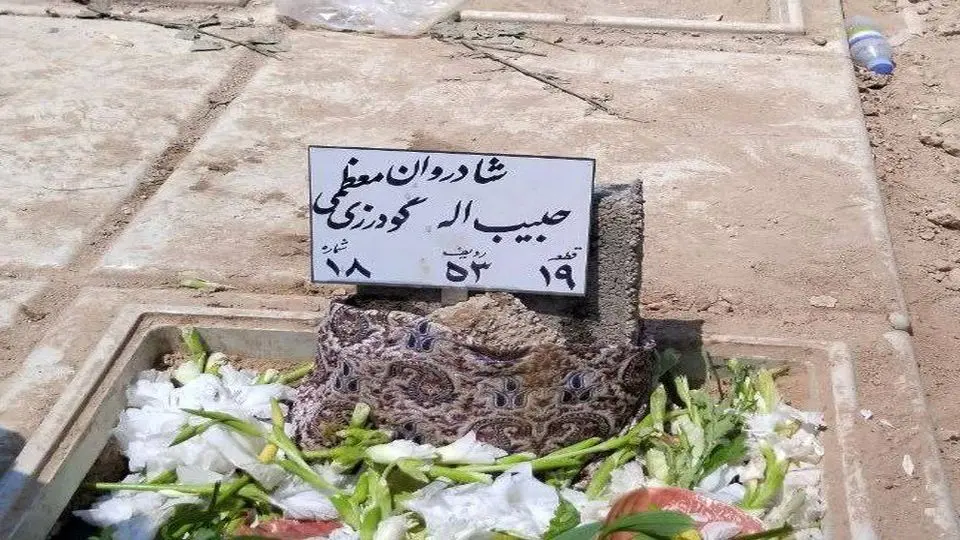 شادروان معظمی
حبیب اله گودرزی
قطعه ردیف شماره
۱۹ ۵۳ ۱۸